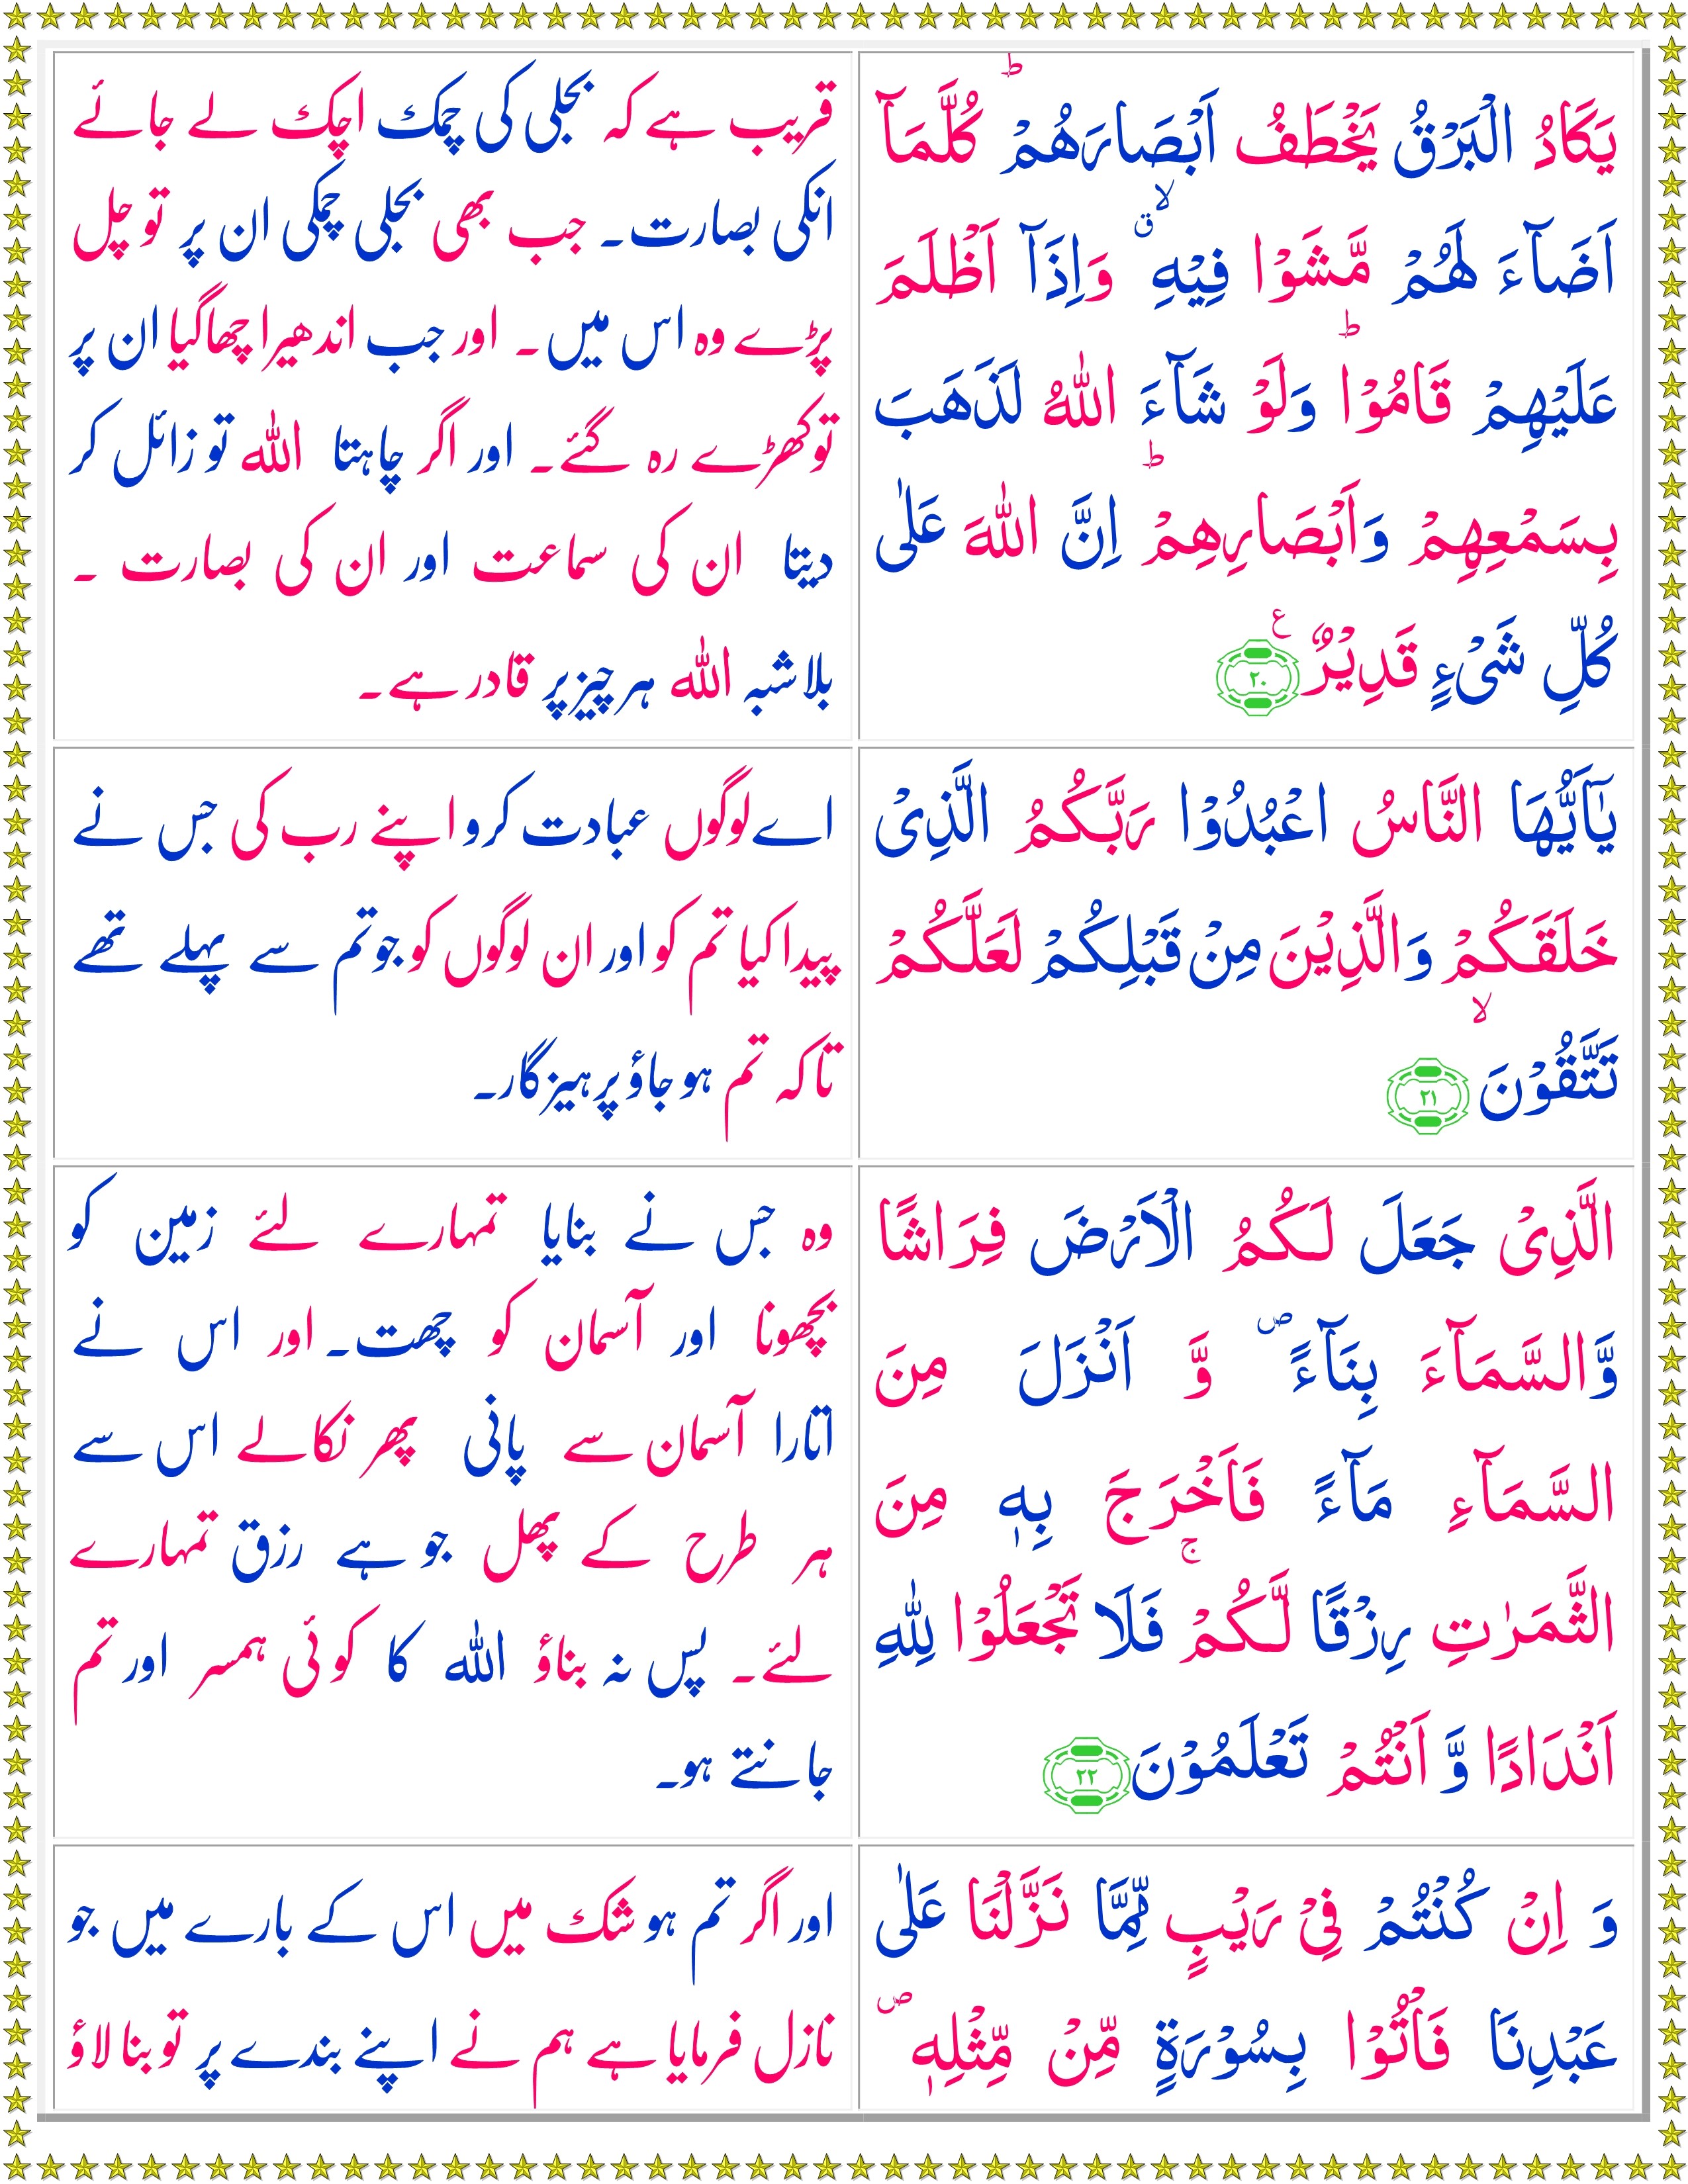 يَكَادُ الْبَرْقُ يَخْطَفُ اَبْصَارَهُمْ ؕ كُلَّمَاۤ
اَضَآءَ لَهُمْ مَّشَوْا فِيْهِ ۙۗ وَاِذَاۤ اَظْلَمَ
عَلَيْهِمْ قَامُوْا ؕ وَلَوْ شَآءَ اللّٰهُ لَذَهَبَ
بِسَمْعِهِمْ وَاَبْصَارِهِمْ ؕ اِنَّ اللّٰهَ عَلٰى
كُلِّ شَىْءٍ قَدِيْرٌ ع ۲۰
قریب ہے کہ بجلی کی چمک اچک لے جائے
انکی بصارت۔ جب بھی بجلی چمکی ان پر تو چل
پڑے وہ اس میں۔ اور جب اندھیرا چھا گیا ان پر
تو کھڑے رہ گئے۔ اور اگر چاہتا اللہ تو زائل کر
دیتا ان کی سماعت اور ان کی بصارت ۔
بلا شبہ اللہ ہر چیز پر قادر ہے۔
يٰۤاَيُّهَا النَّاسُ اعْبُدُوْا رَبَّكُمُ الَّذِىْ
خَلَقَكُمْ وَالَّذِيْنَ مِنْ قَبْلِكُمْ لَعَلَّكُمْ
تَتَّقُوْنَ ۙ ۲۱
اے لوگوں عبادت کرو اپنے رب کی جس نے
پیدا کیا تم کو اور ان لوگوں کو جو تم سے پہلے تھے
تاکہ تم ہو جاؤ پرہیزگار۔
الَّذِىْ جَعَلَ لَكُمُ الْاَرْضَ فِرَاشًا
وَّالسَّمَآءَ بِنَآءً ۖ وَّ اَنْزَلَ مِنَ
السَّمَآءِ مَآءً فَاَخْرَجَ بِهٖ مِنَ
الثَّمَرٰتِ رِزْقًا لَّكُمْ ۚ فَلَا تَجْعَلُوْا لِلّٰهِ
اَنْدَادًا وَّ اَنْتُمْ تَعْلَمُوْنَ ۲۲
وہ جس نے بنایا تمہارے لئے زمین کو
بچھونا اور آسمان کو چھت۔ اور اس نے
اتارا آسمان سے پانی پھر نکالے اس سے
ہر طرح کے پھل جو ہے رزق تمہارے
لئے۔ پس نہ بناؤ اللہ کا کوئی ہمسر اور تم
جانتے ہو۔
وَ اِنْ كُنْتُمْ فِىْ رَيْبٍ مِّمَّا نَزَّلْنَا عَلٰى
عَبْدِنَا فَاْتُوْا بِسُوْرَةٍ مِّنْ مِّثْلِهٖ ۖ
اور اگر تم ہو شک میں اس کے بارے میں جو
نازل فرمایا ہے ہم نے اپنے بندے پر تو بنا لاؤ